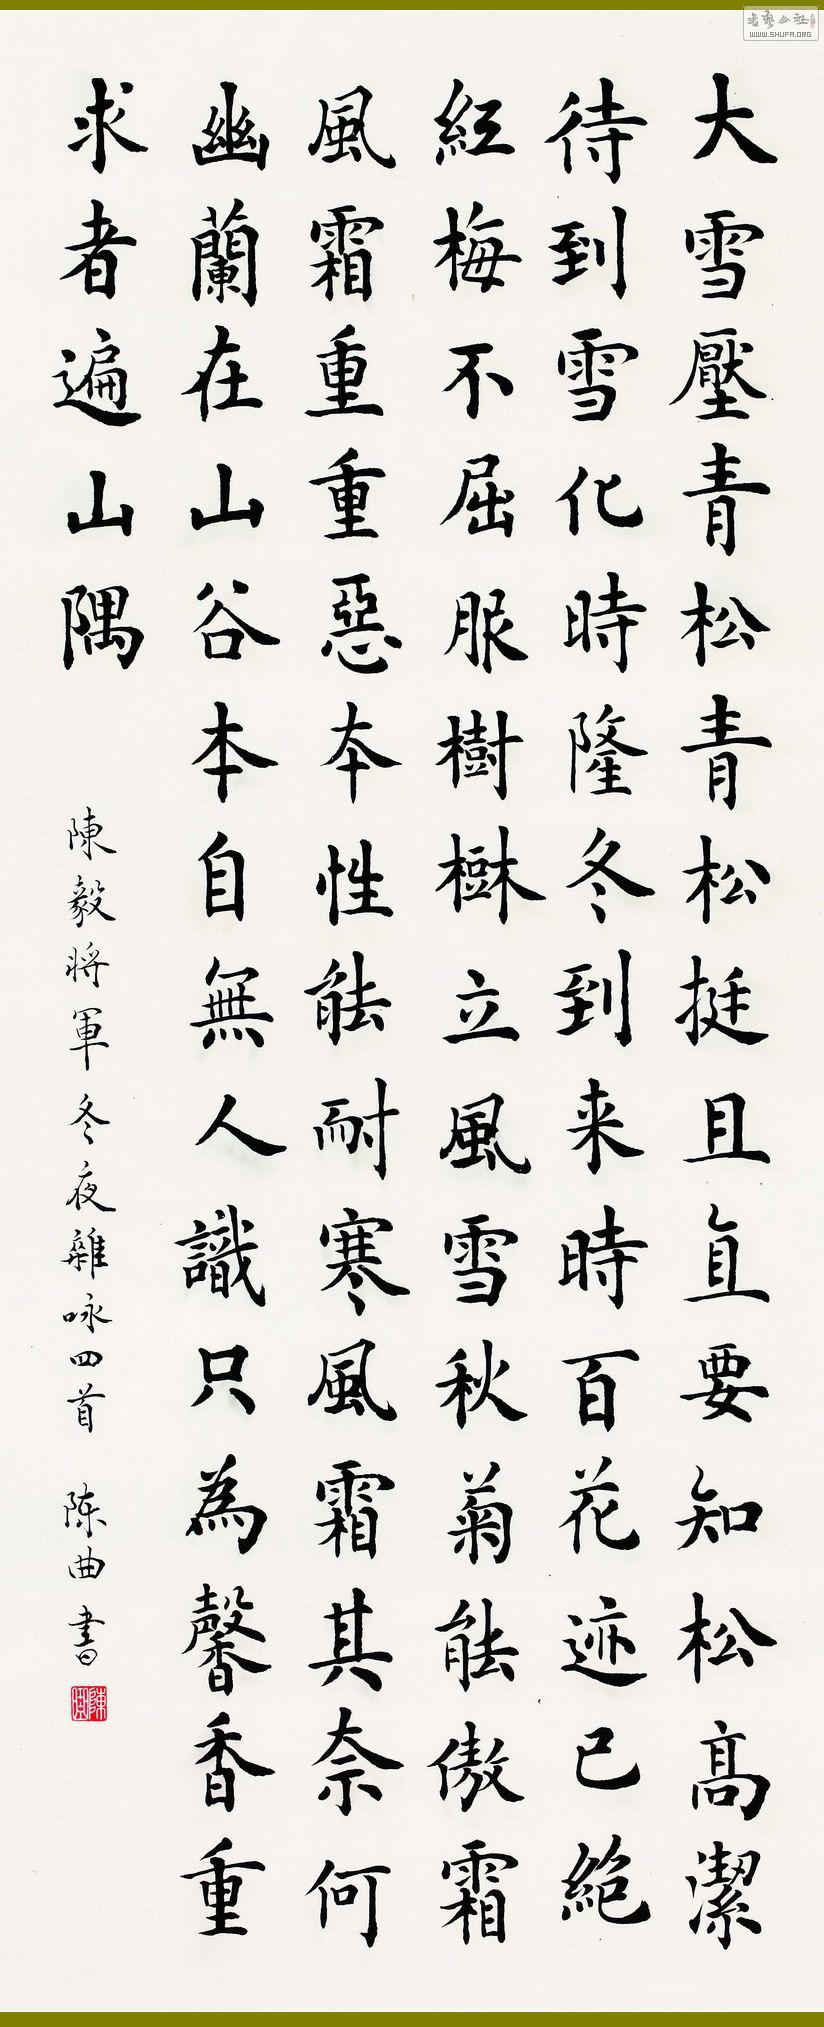 大雪壓青松青松挺且直要知松高潔
待到雪化時隆冬到来時百花迹已絕
紅梅不屈服樹樹立風雪秋菊能傲霜
風霜重重惡本性能耐寒風霜其奈何
幽蘭在山谷本自無人識只為馨香重
求者遍山隅
陳毅將軍冬夜雜咏四首 陈曲書
书艺公社
WWW.SHUFA.ORG